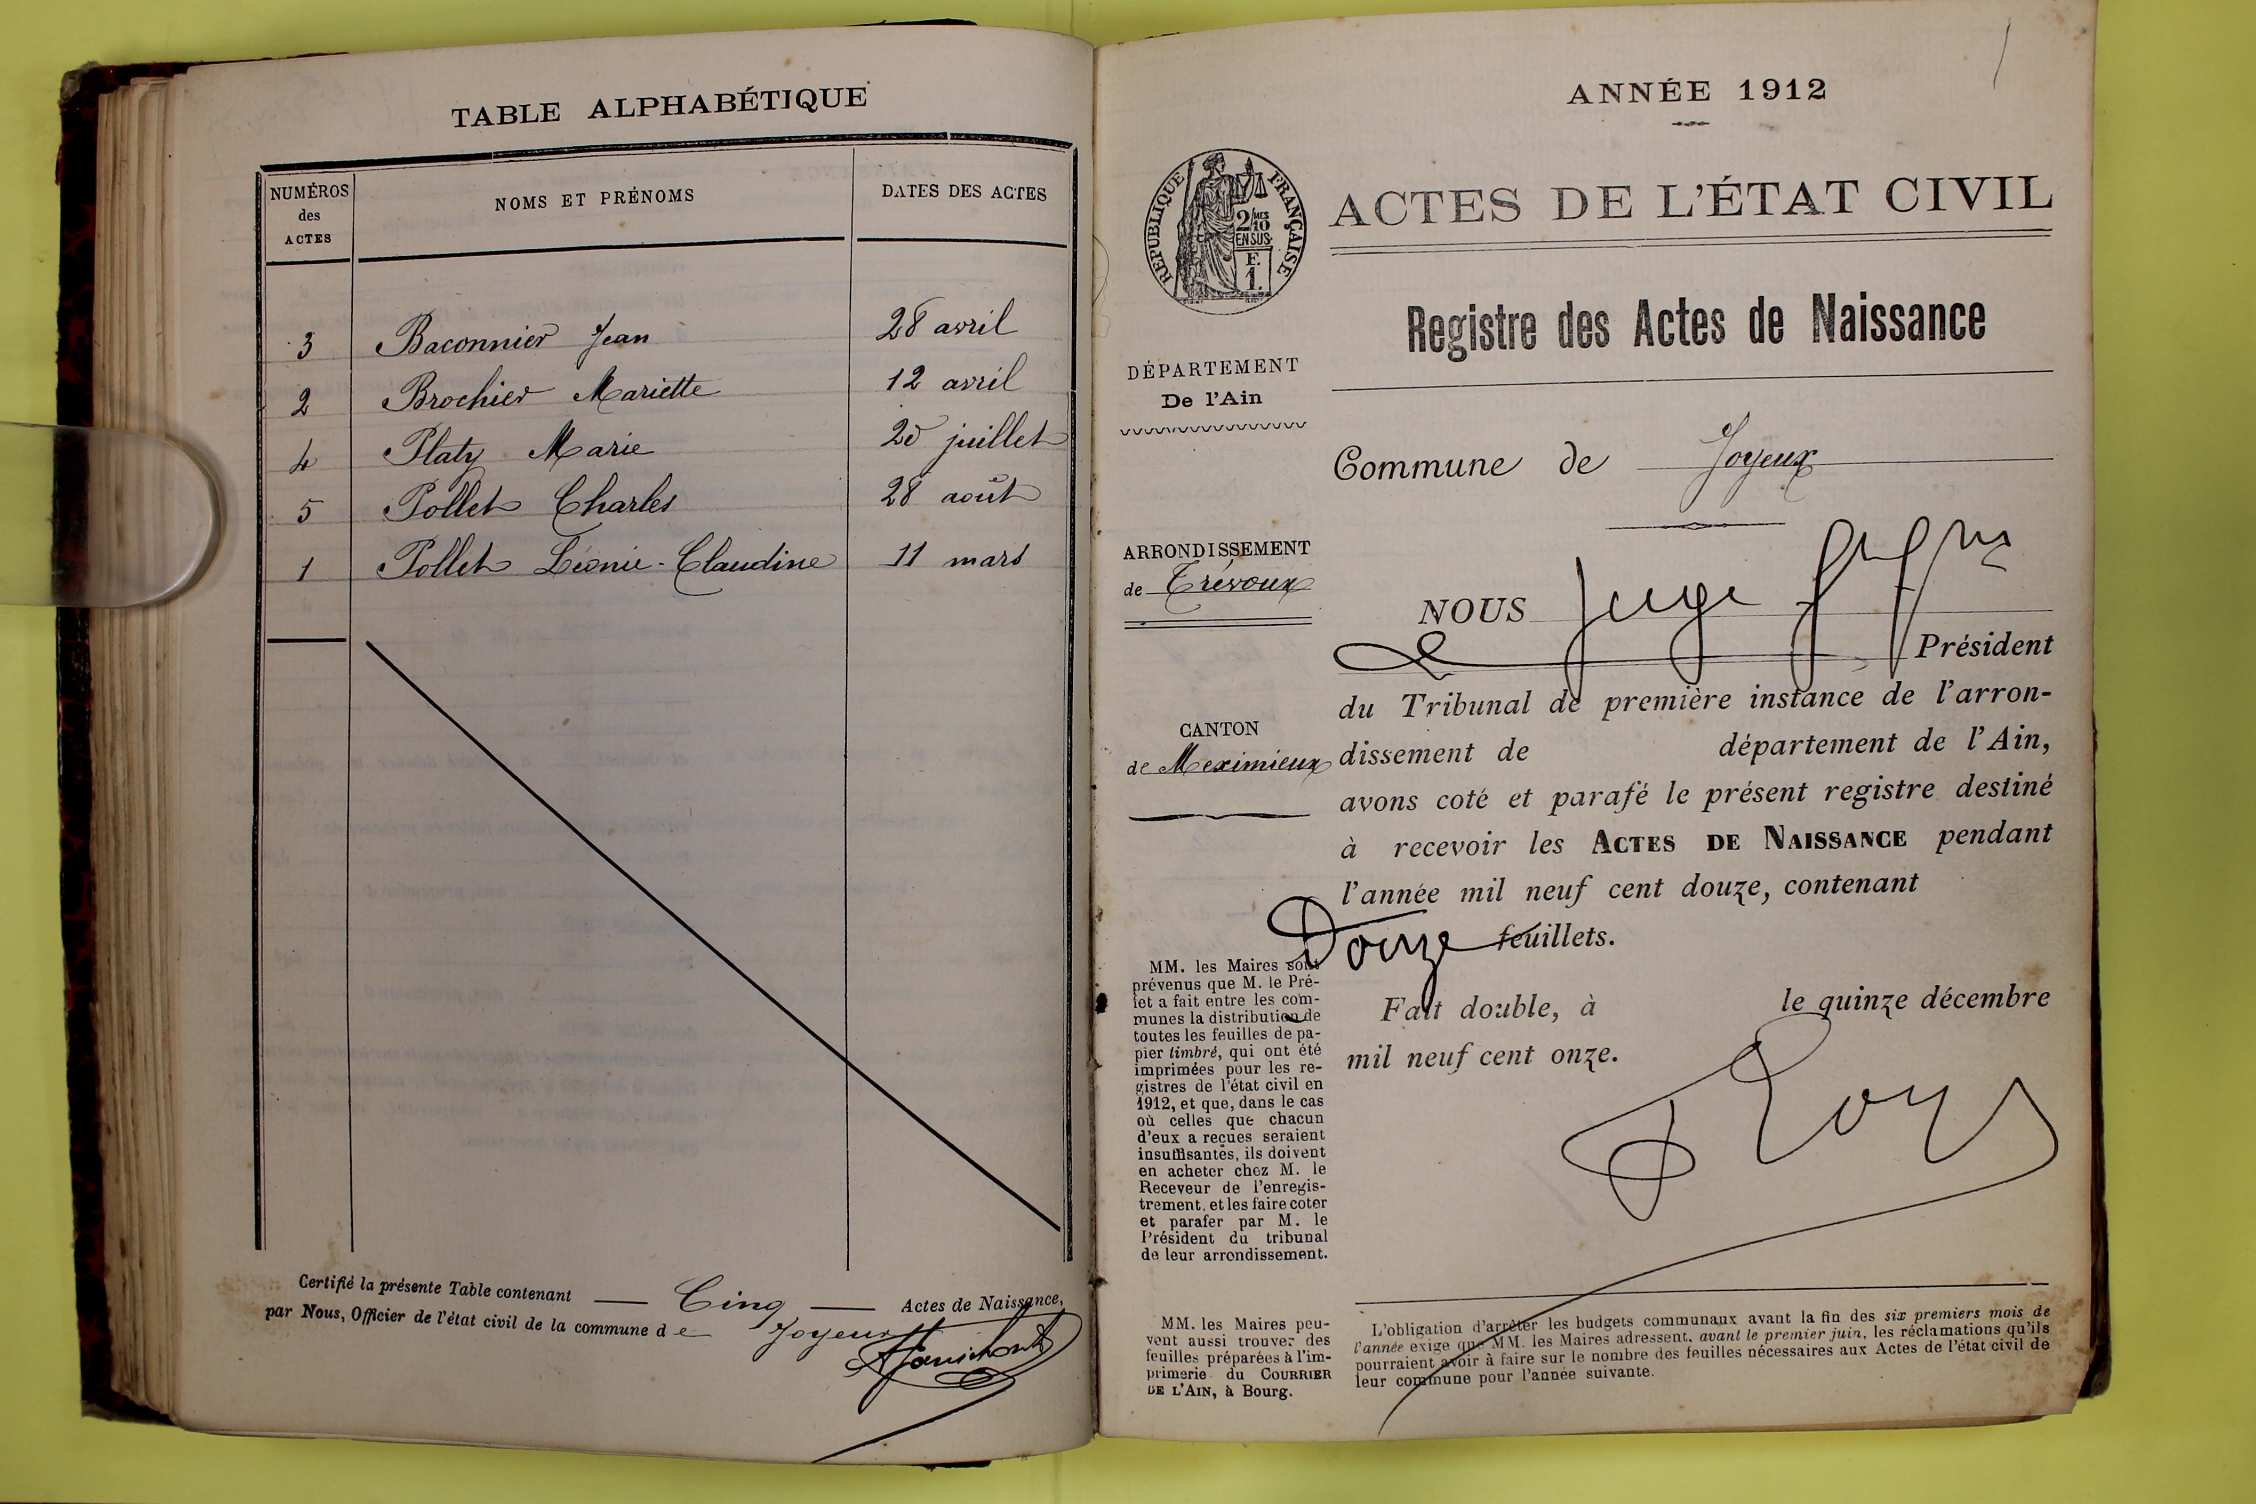 TABLE ALPHABÉTIQUE
NUMÉROS des ACTES
NOMS ET PRÉNOMS
DATES DES ACTES
3 Baconnier Jean 28 avril
2 Brochier Mariette 12 avril
4 Platy Marie juillet
5 Pollet Charles 28 août
1 Pollet Léonie-Claudine 11 mars
Certifié la présente Table contenant Cinq Actes de Naissance,
par Nous, Officier de l'état civil de la commune de Joyeux
ANNÉE 1912
RÉPUBLIQUE FRANÇAISE
2/10MES
EN SUS
F.
1.
ACTES DE L'ÉTAT CIVIL
Registre des Actes de Naissance
DÉPARTEMENT
De l'Ain
Commune de Joyeux
ARRONDISSEMENT
de Trévoux
CANTON
de Meximieux
NOUS Juge
Président
du Tribunal de première instance de l'arron-
dissement de département de l'Ain,
avons coté et parafé le présent registre destiné
à recevoir les ACTES DE NAISSANCE pendant
l'année mil neuf cent douze, contenant
Douze feuillets.
Fait double, à le quinze décembre
mil neuf cent onze.
MM. les Maires sont
prévenus que M. le Pré-
fet a fait entre les com-
munes la distribution de
toutes les feuilles de pa-
pier timbré, qui ont été
imprimées pour les re-
gistres de l'état civil en
1912, et que, dans le cas
où celles que chacun
d'eux a reçues seraient
insuffisantes, ils doivent
en acheter chez M. le
Receveur de l'enregis-
trement, et les faire coter
et parafer par M. le
Président du tribunal
de leur arrondissement.
MM. les Maires peu-
vent aussi trouver des
feuilles préparées à l'im-
primerie du COURRIER
DE L'AIN, à Bourg.
L'obligation d'arrêter les budgets communaux avant la fin des six premiers mois de
l'année exige que MM. les Maires adressent, avant le premier juin, les réclamations qu'ils
pourraient avoir à faire sur le nombre des feuilles nécessaires aux Actes de l'état civil de
leur commune pour l'année suivante.